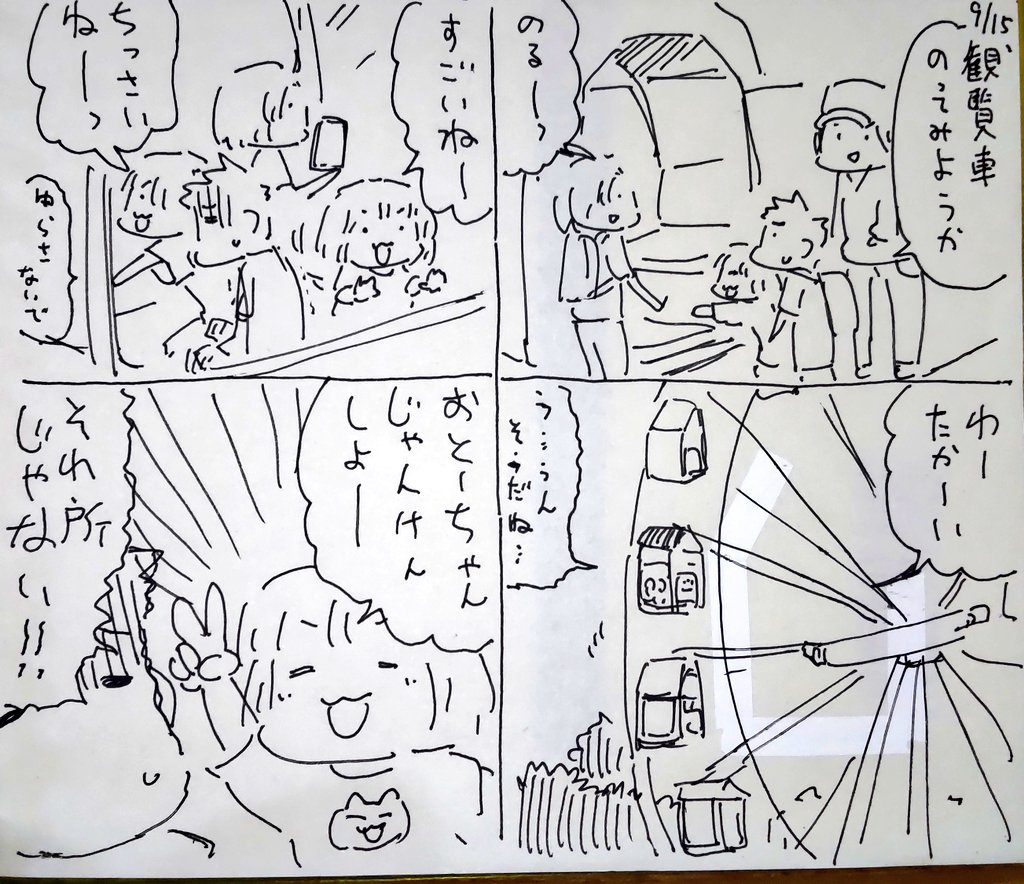 9/15
観覧車
のってみようか
のるーっ
わー
たかーい
う…うん
そーだね…
すごいねー
ちっさい
ねーっ
ゆらさ
ないで
おとーちゃん
じゃんけん
しよー
それ所
じゃない〜〜!!